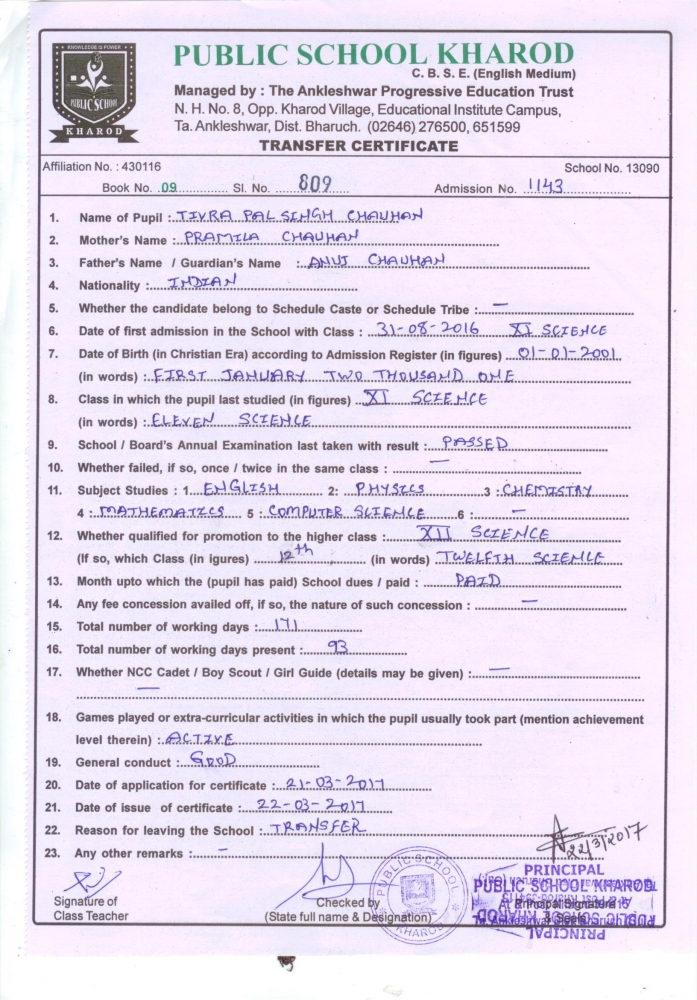 KNOWLEDGE IS POWER
PUBLIC SCHOOL
KHAROD
PUBLIC SCHOOL KHAROD
C. B. S. E. (English Medium)
Managed by : The Ankleshwar Progressive Education Trust
N. H. No. 8, Opp. Kharod Village, Educational Institute Campus,
Ta. Ankleshwar, Dist. Bharuch. (02646) 276500, 651599
TRANSFER CERTIFICATE
Affiliation No. : 430116 School No. 13090
Book No. 09 Sl. No. 809 Admission No. 1143
1. Name of Pupil : TIVRA PAL SINGH CHAUHAN
2. Mother's Name : PRAMILA CHAUHAN
3. Father's Name / Guardian's Name : ANUJ CHAUHAN
4. Nationality : INDIAN
5. Whether the candidate belong to Schedule Caste or Schedule Tribe : —
6. Date of first admission in the School with Class : 31-08-2016 XI SCIENCE
7. Date of Birth (in Christian Era) according to Admission Register (in figures) 01-01-2001
(in words) : FIRST JANUARY TWO THOUSAND ONE
8. Class in which the pupil last studied (in figures) XI SCIENCE
(in words) : ELEVEN SCIENCE
9. School / Board's Annual Examination last taken with result : PASSED
10. Whether failed, if so, once / twice in the same class : —
11. Subject Studies : 1 ENGLISH 2: PHYSICS 3 : CHEMISTRY
4 : MATHEMATICS 5 : COMPUTER SCIENCE 6 : —
12. Whether qualified for promotion to the higher class : XII SCIENCE
(If so, which Class (in igures) 12th (in words) TWELFTH SCIENCE
13. Month upto which the (pupil has paid) School dues / paid : PAID
14. Any fee concession availed off, if so, the nature of such concession : —
15. Total number of working days : 171
16. Total number of working days present : 93
17. Whether NCC Cadet / Boy Scout / Girl Guide (details may be given) : —
—
18. Games played or extra-curricular activities in which the pupil usually took part (mention achievement
level therein) : ACTIVE
19. General conduct : GOOD
20. Date of application for certificate : 21-03-2017
21. Date of issue of certificate : 22-03-2017
22. Reason for leaving the School : TRANSFER
23. Any other remarks : —
22/3/2017
PRINCIPAL
PUBLIC SCHOOL KHAROD
Signature of
Class Teacher
Checked by
(State full name & Designation)
PUBLIC SCHOOL
KHAROD
Principal Signature
PRINCIPAL